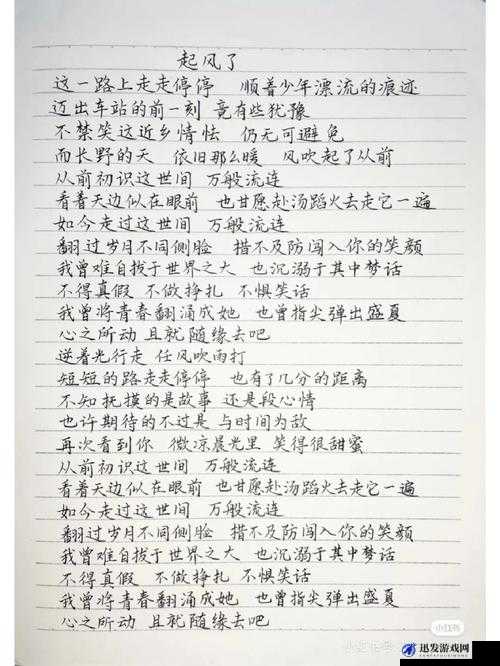 起风了
这一路上走走停停 顺着少年漂流的痕迹
迈出车站的前一刻 竟有些犹豫
不禁笑这近乡情怯 仍无可避免
而长野的天 依旧那么暖 风吹起了从前
从前初识这世间 万般流连
看着天边似在眼前 也甘愿赴汤蹈火去走它一遍
如今走过这世间 万般流连
翻过岁月不同侧脸 措不及防闯入你的笑颜
我曾难自拔于世界之大 也沉溺于其中梦话
不得真假 不做挣扎 不惧笑话
我曾将青春翻涌成她 也曾指尖弹出盛夏
心之所动 且就随缘去吧
逆着光行走 任风吹雨打
短短的路走走停停 也有了几分的距离
不知抚摸的是故事 还是段心情
也许期待的不过是 与时间为敌
再次看到你 微凉晨光里 笑得很甜蜜
从前初识这世间 万般流连
看着天边似在眼前 也甘愿赴汤蹈火去走它一遍
如今走过这世间 万般流连
翻过岁月不同侧脸 措不及防闯入你的笑颜
我曾难自拔于世界之大 也沉溺于其中梦话
不得真假 不做挣扎 不惧笑话
我曾将青春翻涌成她 也曾指尖弹出盛夏
心之所动 且就随缘去吧
小红书
迅发游戏网